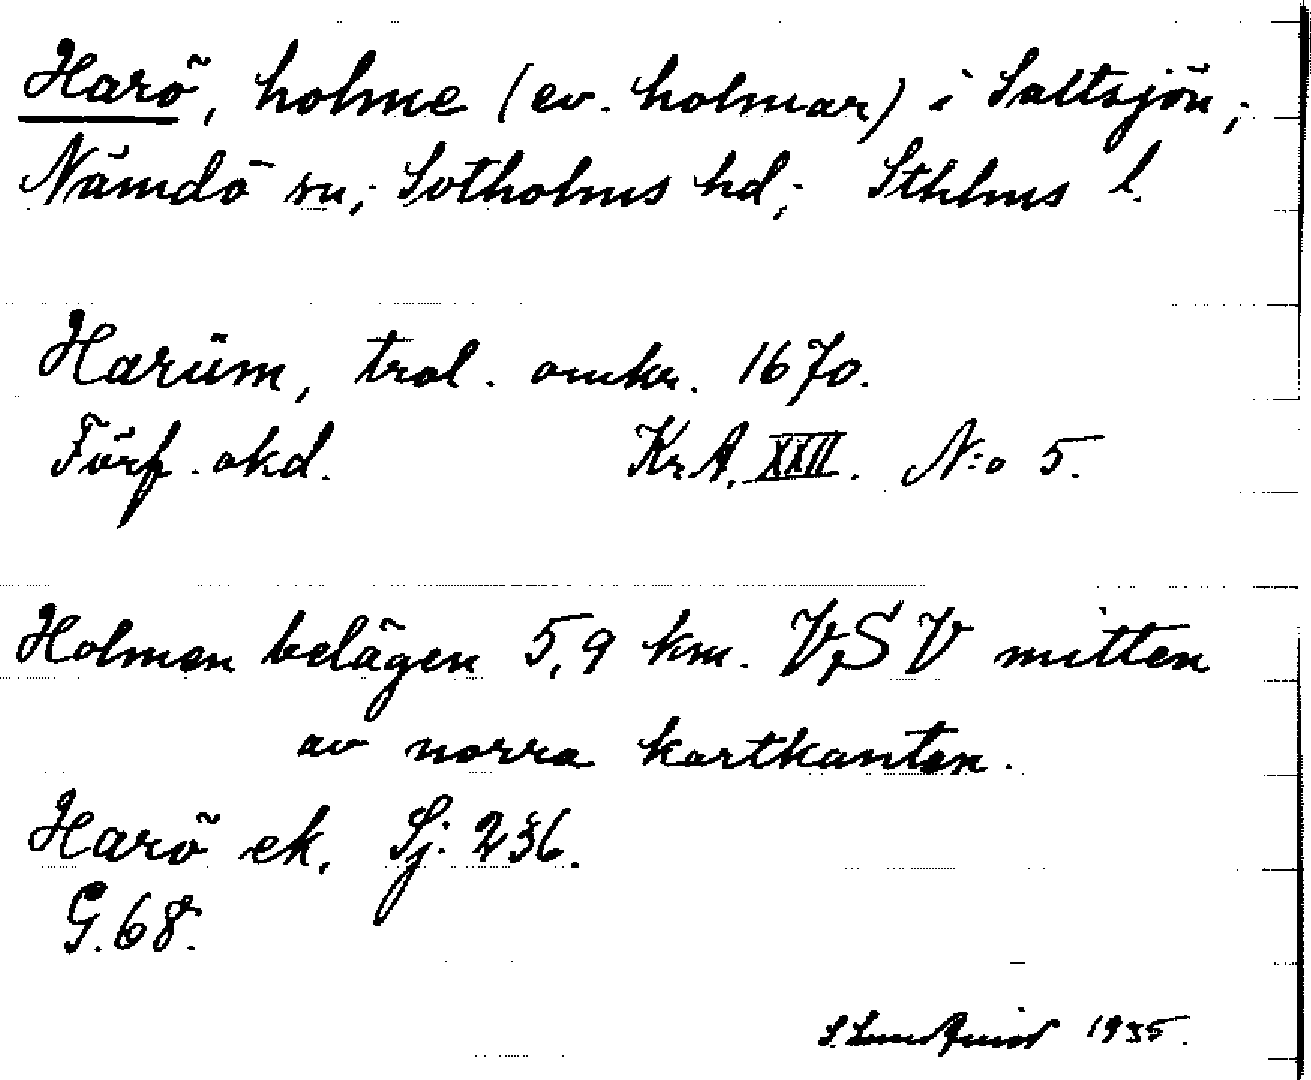 Harö, holme (ev. holmar) i Saltsjön;
Nämdö sn; Sotholms hd; Sthlms l.
Harüm, trol. omkr. 1670.
Förf. okd. Kr.A. XXII. N:o 5.
Holmen belägen 5,9 km. V,SV mitten
av norra kartkanten.
Harö ek. Sj: 236.
G.68.
S. Lundquist 1935.